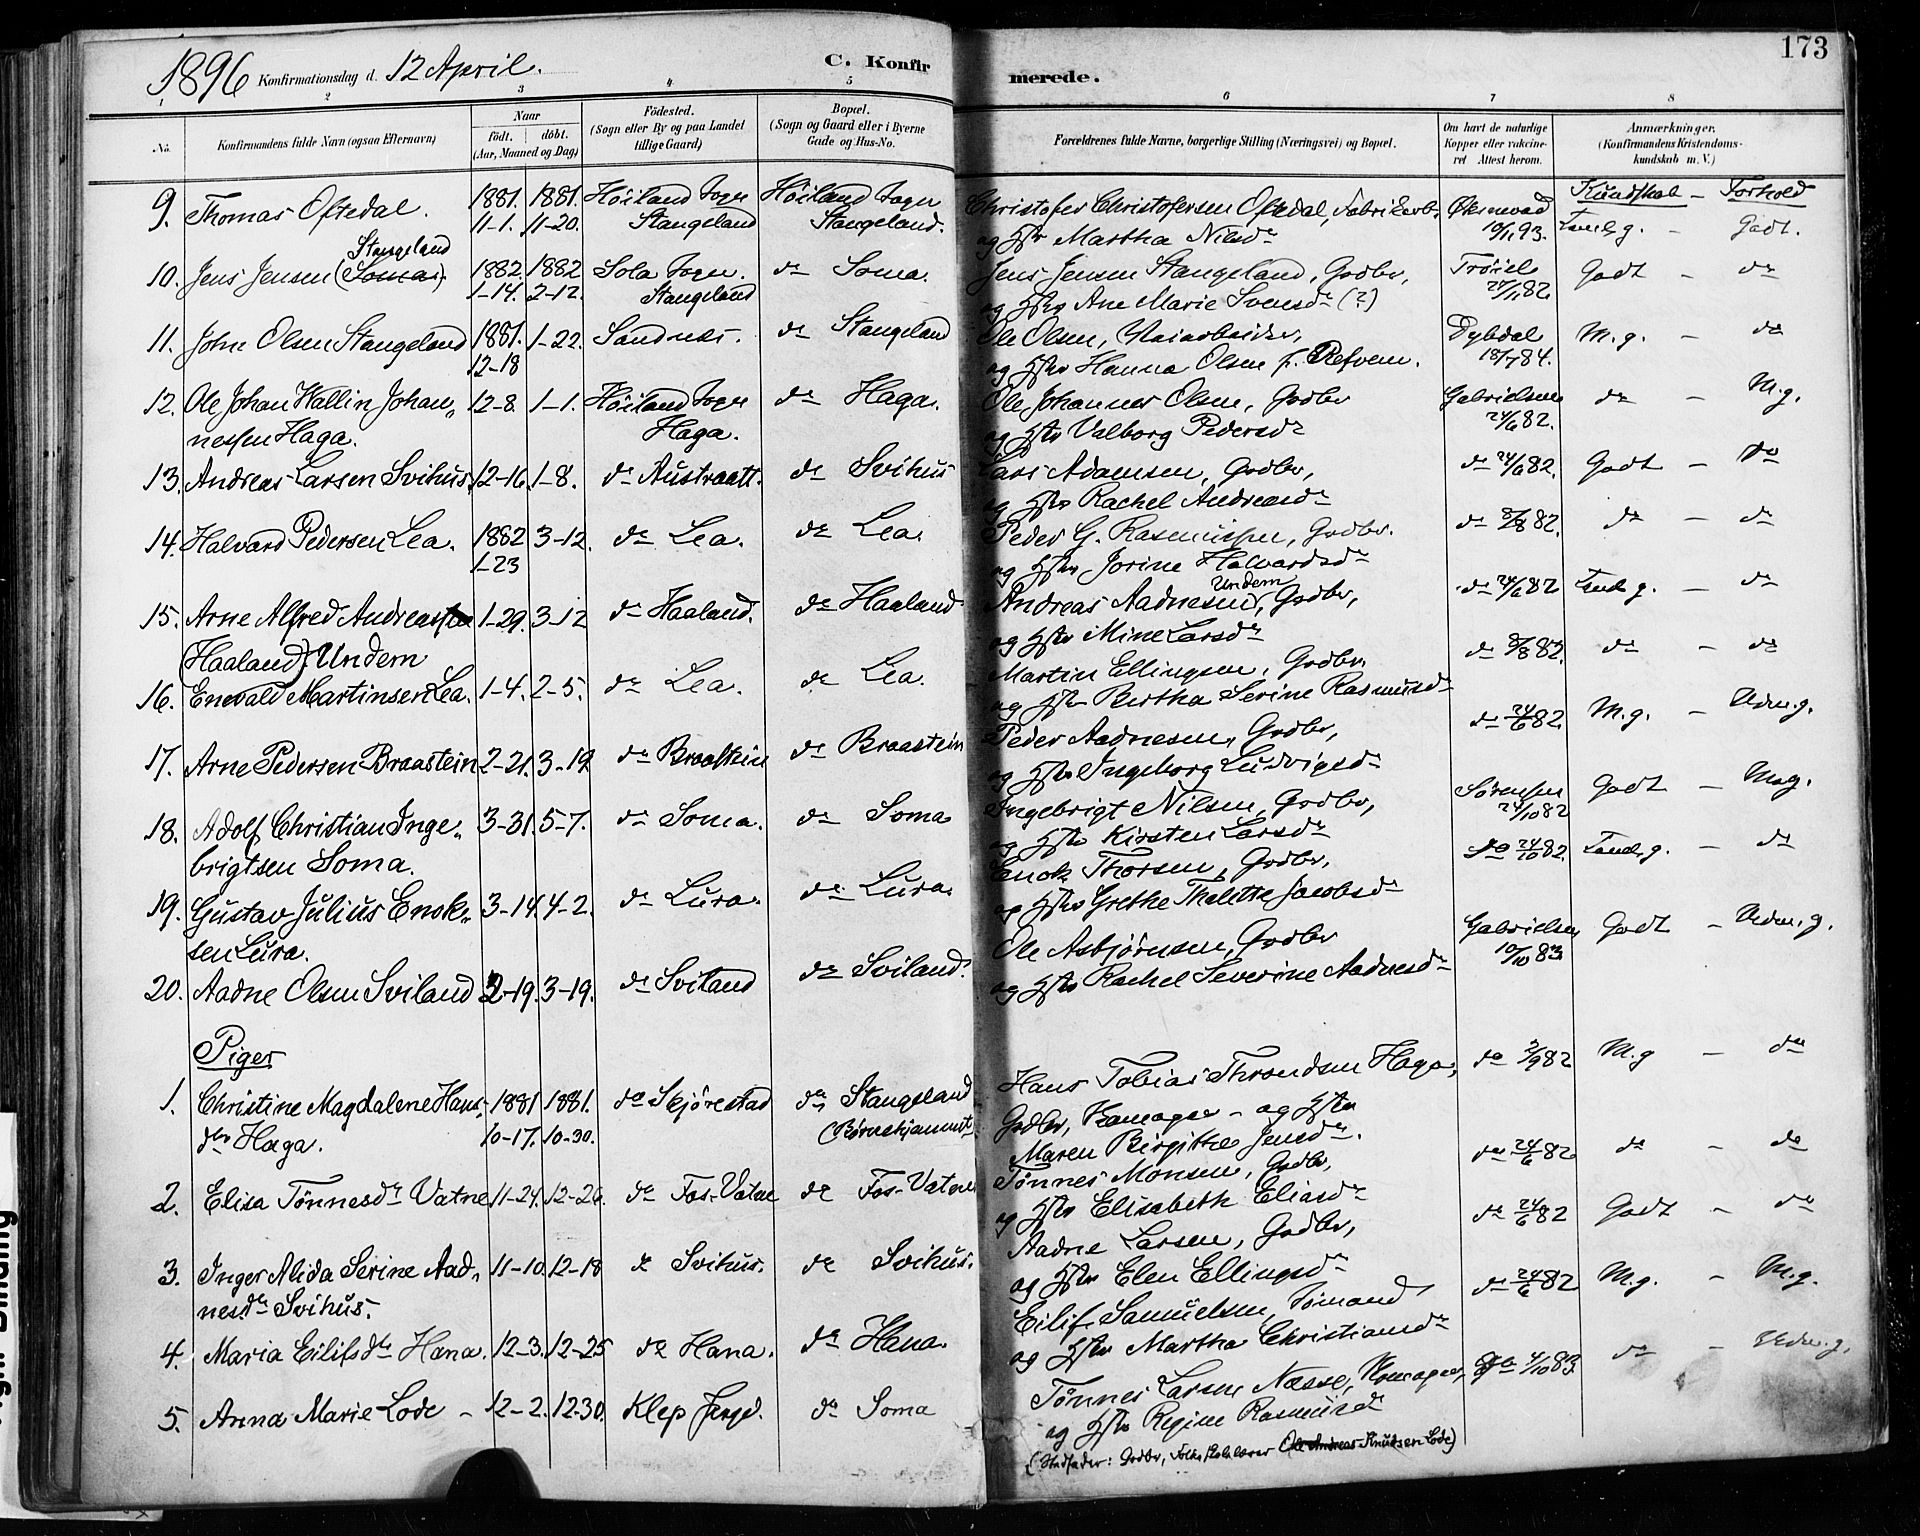 173
1896 Konfirmationsdag d. 12 April. C. Konfirmerede.
1 2 3 4 5 6 7 8
No. Konfirmandens fulde Navn (ogsaa Efternavn) Naar födt. döbt. (Aar, Maaned og Dag) Födested. (Sogn eller By og paa Landet tillige Gaard) Bopæl. (Sogn og Gaard eller i Byerne Gade og Hus-No. Forældrenes fulde Navne, borgerlige Stilling (Næringsvei) og Bopæl. Om havt de naturlige Kopper eller vaccineret Attest herom. Anmærkninger. (Konfirmandens Kristendomskundskab m. V.)
Kundskab – Forhold
9. Thomas Oftedal. 1881. 11-1. 1881. 11-20. Höiland Sogn Stangeland Höiland Sogn Stangeland. Christofer Christofersen Oftedal, Fabrikarb. Øksnevad 10/1 93. Temlig. – Godt.
og Hstr Martha Nilsdr
10. Jens Jensen (Soma). Stangeland 1882. 1-14. 1882 2-12. Sola Sogn. Stangeland do Soma. Jens Jensen Stangeland, Grdbr, Trøiel 27/11 82. Godt – do
og Hstr Ane Marie Svensdr (?)
11. John Olsen Stangeland 1881. 12-18 1-22. Sandnes. do Stangeland Ole Olsen, Veiarbeider, Dybdal 18/7 84. M.g. – do
og Hstr Hanna Olsen f. Refvem.
12. Ole Johan Wallin Johan„ 12-8. 1-1. Höiland Sogn Haga. do Haga. Ole Johannes Olsen, Grdbr Gabrielsen 24/6 82. do – M.g.
nessen Haga. og Hstr Valborg Pedersdr
13. Andreas Larsen Svihus. 12-16. 1-8. do Austraatt. do Svihus Lars Adamsen, Grdbr, do 24/6 82. Godt – do
og Hstr Rachel Andreasdr
14. Halvard Pedersen Lea. 1882 1-23 3-12. do Lea. do Lea. Peder G. Rasmussen, Grdbr. do 8/8 82. do – do
og Hstr Jorine Halvardsdr
15. Arne Alfred Andreassen 1-29. 3-12 do Haaland. do Haaland Andreas Aadnesen Undem, Grdbr, do 24/6 82 Temlig. – do
(Haaland) Undem og Hstr Mine Larsdr
16. Enevald Martinsen Lea. 1-4. 2-5. do Lea. do Lea. Martin Ellingsen, Grdbr. do 8/8 82. do – do
og Hstr Bertha Serine Rasmusdr
17. Arne Pedersen Braastein 2-21. 3-19 do Braastein do Braastein Peder Aadnesen, Grdbr, do 24/6 82 M.g. – Udm.g.
og Hstr Ingeborg Ludvigsdr
18. Adolf Christian Inge„ 3-31. 5-7. do Soma. do Soma Ingebrigt Nilsen, Grdbr, Sørensen 24/10 82 Godt – Meg.
brigtsen Soma. og Hstr Kirsten Larsdr
19. Gustav Julius Enok„ 3-14. 4-2. do Lura. do Lura. Enok Thorsen, Grdbr, do 24/10 82. Temlig. – do
sen Lura. og Hstr Grethe Thalette Jacobsdr
20. Aadne Olsen Sviland 2-19. 3-19. do Sviland do Sviland. Ole Asbjørnsen, Grdbr Gabrielsen 10/10 83 Godt – Udm.g.
og Hstr Rachel Severine Aadnesdr
Piger
1. Christine Magdalene Hans„ 1881 10-17. 1881. 10-30. do Skjørestad do Stangeland (Børnehjemmet. Hans Tobias Throndsen Haga, do 2/9 82 M.g – do
dtr Haga. Grdbr, Kræmager – og Hstr
Maren Birgitte Jensdr.
2. Elisa Tønnesdr Vatne 11-24. 12-26. do Fos-Vatne do Fos-Vatne Tønnes Monsen, Grdbr, do 24/6 82 do – do
og Hstr Elisabeth Eliasdr
3. Inger Alida Serine Aad„ 11-10 12-18 do Svihus. do Svihus. Aadne Larsen, Grdbr, do 24/6 82 Godt – do
nesdr Svihus. og Hstr Elen Ellingsdr
4. Maria Eilifsdtr Hana. 12-3. 12-25 do Hana. do Hana. Eilif Samuelsen, Sømand, do 24/6 82 M.g. – M.g.
og Hstr Martha Christiansdr
5. Anna Marie Lode – 12-2. 12-30. Klep Jeregd. do Soma Tønnes Larsen Næsse, 4/10 83. do – Udm.g.
og Hstr Regine Rasmusdr
(Stedfader: Grdbr, Ole Andreas Knudsen Lode)